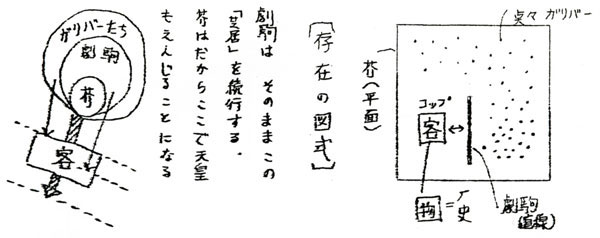 点々 ガリバー
芥(平面)
コップ
客
物=厂史
劇駒
(直線)
[存在の図式]
劇駒は そのままこの
「芝居」を続行する.
芥はだからここで天皇
もえんじることになる
ガリバーたち
劇駒
芥
客